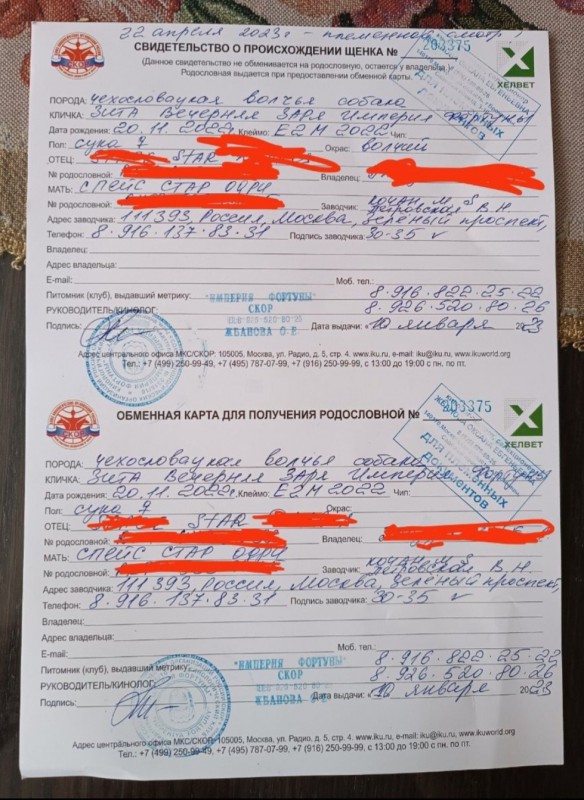 22 апреля 2023г - племенной смотр!
СВИДЕТЕЛЬСТВО О ПРОИСХОЖДЕНИИ ЩЕНКА № 203375
СКОР
ХЕЛВЕТ
(Данное свидетельство не обменивается на родословную, остается у владельца.)
Родословная выдается при предоставлении обменной карты.
ПОРОДА: чехословацкая волчья собака
КЛИЧКА: ЗИТА Вечерняя ЗАРЯ Империя Фортуны
Дата рождения: 20.11.2022 Клеймо: EZM 2022 Чип:
Пол: сука Окрас: волчий
ОТЕЦ: STAR
№ родословной: Владелец:
МАТЬ: СПЕЙС СТАР ОДРИ
№ родословной: Заводчик: Петровская В.Н.
Адрес заводчика: 111393, Россия, Москва, Зеленый проспект,
Телефон: 8-916-137-83-31 Подпись заводчика: 30-35
Владелец:
Адрес владельца:
E-mail: Моб. тел.:
Питомник (клуб), выдавший метрику: "ИМПЕРИЯ ФОРТУНЫ" 8-916-822-25-22
РУКОВОДИТЕЛЬ/КИНОЛОГ: СКОР 8-926-520-80-26
Подпись: ЖБАНОВА О.Е. Дата выдачи: «10 января 2023
Адрес центрального офиса МКС/СКОР: 105005, Москва, ул. Радио, д. 5, стр. 4. www.iku.ru, e-mail: iku@iku.ru, www.ikuworld.org
Тел.: +7 (499) 250-99-49, +7 (495) 787-07-99, +7 (916) 250-99-99, с 13:00 до 19:00 с пн. по пт.
ОБМЕННАЯ КАРТА ДЛЯ ПОЛУЧЕНИЯ РОДОСЛОВНОЙ № 203375
СКОР
ХЕЛВЕТ
ДЛЯ ПЛЕМЕННЫХ ДОКУМЕНТОВ
ПОРОДА: чехословацкая волчья собака
КЛИЧКА: ЗИТА Вечерняя ЗАРЯ Империя Фортуны
Дата рождения: 20.11.2022 Клеймо: EZM 2022 Чип:
Пол: сука Окрас:
ОТЕЦ: STAR
№ родословной: Владелец:
МАТЬ: СПЕЙС СТАР ОДРИ
№ родословной: Заводчик: Петровская В.Н.
Адрес заводчика: 111393, Россия, Москва, Зеленый проспект,
Телефон: 8-916-137-83-31 Подпись заводчика: 30-35
Владелец:
Адрес владельца:
E-mail: Моб. тел.:
Питомник (клуб), выдавший метрику: "ИМПЕРИЯ ФОРТУНЫ" 8-916-822-25-22
РУКОВОДИТЕЛЬ/КИНОЛОГ: СКОР 8-926-520-80-26
Подпись: ЖБАНОВА Дата выдачи: «10 января 2023
Адрес центрального офиса МКС/СКОР: 105005, Москва, ул. Радио, д. 5, стр. 4. www.iku.ru, e-mail: iku@iku.ru, www.ikuworld.org
Тел.: +7 (499) 250-99-49, +7 (495) 787-07-99, +7 (916) 250-99-99, с 13:00 до 19:00 с пн. по пт.